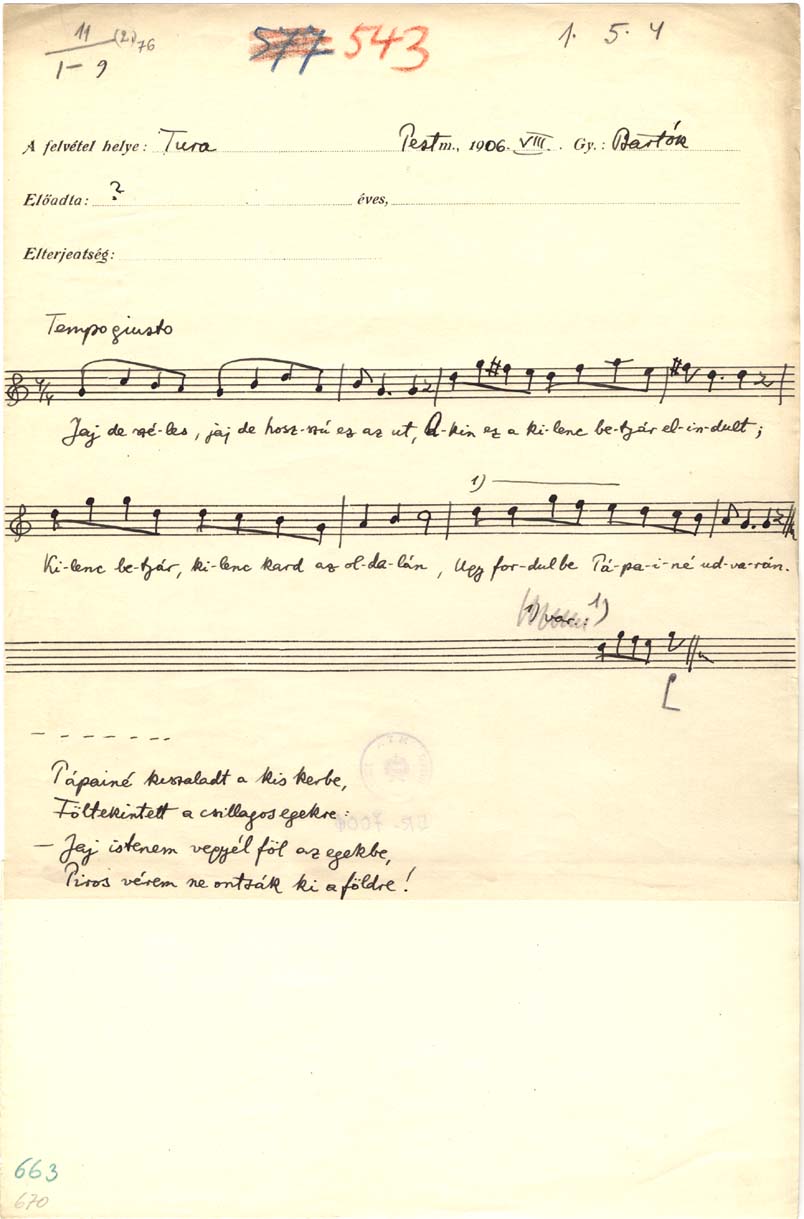 11 (2) 76
1-9
577 543
1. 5. 4
A felvétel helye: Tura Pest m., 1906. VIII. Gy.: Bartók
Előadta: ? éves,
Elterjeatség:
Tempo giusto
Jaj de szé-les, jaj de hosz-szú ez az ut, A-kin ez a ki-lenc be-tyár el-in-dult;
1)
Ki-lenc be-tyár, ki-lenc kard az ol-da-lán, Ugy for-dul be Tá-pa-i-né ud-va-rán.
1) var.: 1)
Tápainé kiszaladt a kis kerbe,
Föltekintett a csillagos egekre:
– Jaj istenem vegyél föl az egekbe,
Piros vérem ne ontsák ki a földre!
663
670